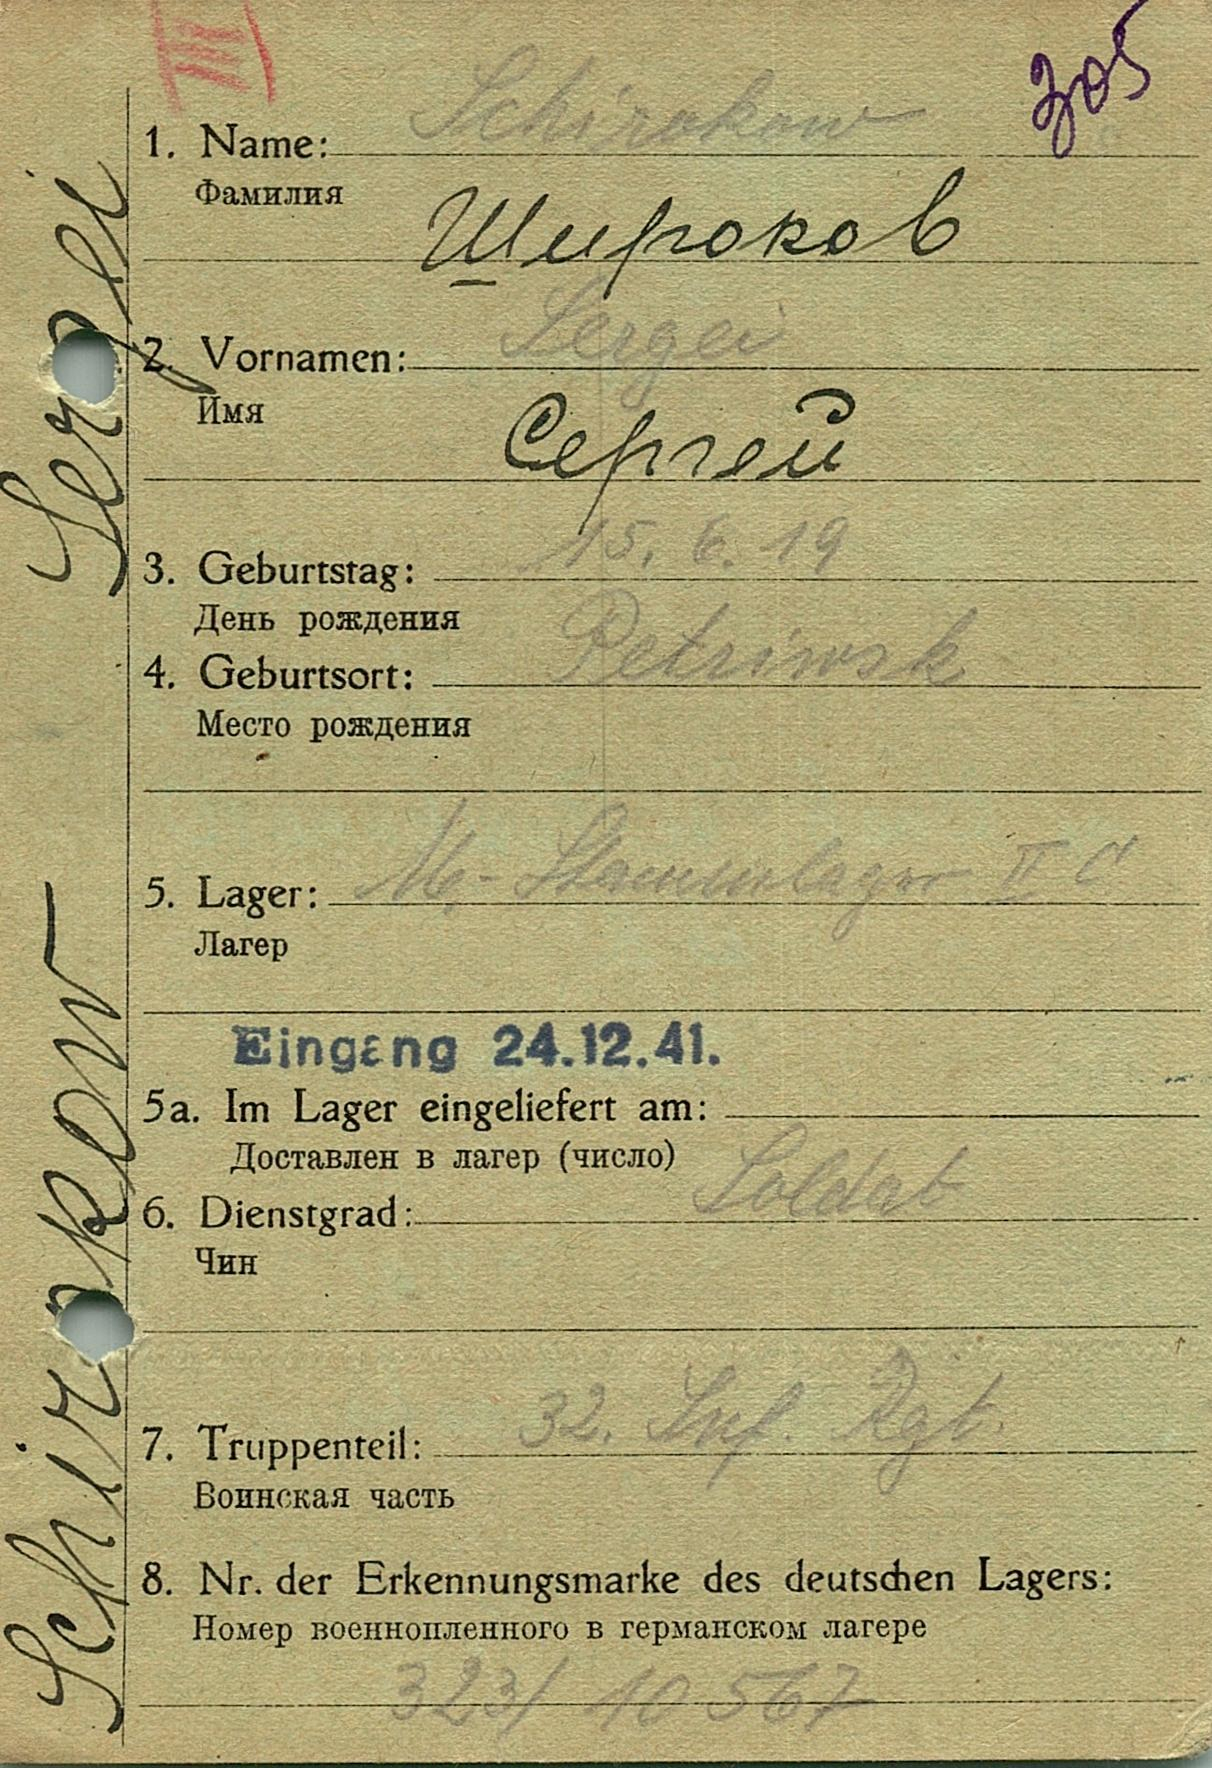 III
305
Schirokow
1. Name:
Фамилия
Широков
Sergei
2. Vornamen:
Имя
Сергей
15. 6. 19
3. Geburtstag:
День рождения
Petriwsk
4. Geburtsort:
Место рождения
5. Lager: M.-Stammlager II C
Лагер
Eingang 24.12.41.
5a. Im Lager eingeliefert am:
Доставлен в лагер (число)
6. Dienstgrad: Soldat
Чин
7. Truppenteil: 32. Inf. Rgt.
Воинская часть
8. Nr. der Erkennungsmarke des deutschen Lagers:
Номер военнопленного в германском лагере
323/ 10 567
Schirokow Sergei